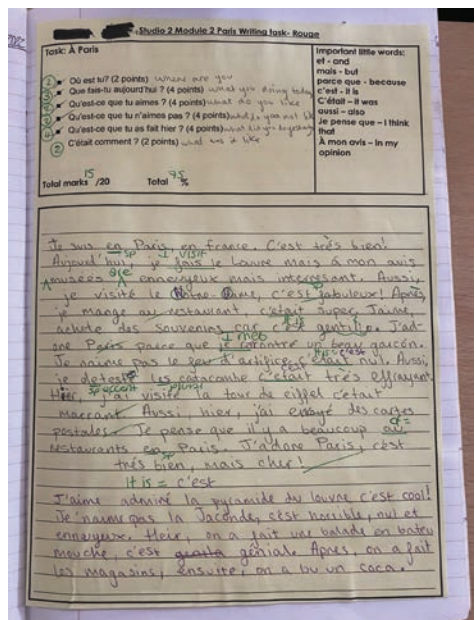 Studio 2 Module 2 Paris Writing task- Rouge
Task: À Paris
Où est tu? (2 points) where are you
Que fais-tu aujourd'hui ? (4 points) what you doing today
Qu'est-ce que tu aimes ? (4 points) what do you like
Qu'est-ce que tu n'aimes pas ? (4 points) you not like
Qu'est-ce que tu as fait hier ? (4 points) what did you
C'était comment ? (2 points) what was it like
Total marks 15 /20 Total 75 %
Important little words:
et - and
mais - but
parce que - because
c'est - it is
C'était – it was
aussi – also
Je pense que – I think
that
À mon avis – In my
opinion
Je suis en Paris, en france. C'est très bien!
sp I visit
Aujourd'hui, je fais le Louvre mais à mon avis
are
musées ennuyeux mais interresant. Aussi,
sp
je visité le Dame, c'est fabuleux! Après,
je mange au restaurant, c'était super. J'aime,
achete des souvenirs car c'est gentille. J'ad-
I met
ore Paris parce que je rencontré un beau garçon.
it is = c'est
Je n'aime pas le feu d'artifice c'était nul. Aussi,
c'est
je deteste les catacombe c'était très effrayant.
sp accent plural
Hier, j'ai visité la tour de eiffel c'était
marrant. Aussi hier, j'ai envoyé des cartes
postales. Je pense que il y a beaucoup
restaurants Paris. J'adore Paris, c'est
sp
très bien, mais cher!
It is = c'est
J'aime admiré la pyramide du louvre c'est cool!
Je n'aime pas la Jaconde, c'est horrible, nul et
ennuyeux. Heir, on a fait une balade en bateu
mouche, c'est génial. Apres, on a fait
les magasins, ensuite, on a bu un coca.